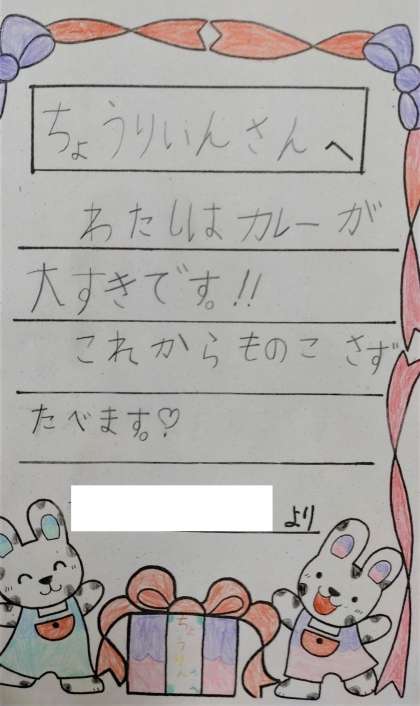 ちょうりいんさんへ
わたしはカレーが
大すきです。!!
これからものこさず
たべます。♡
より
ちょうりいんさん